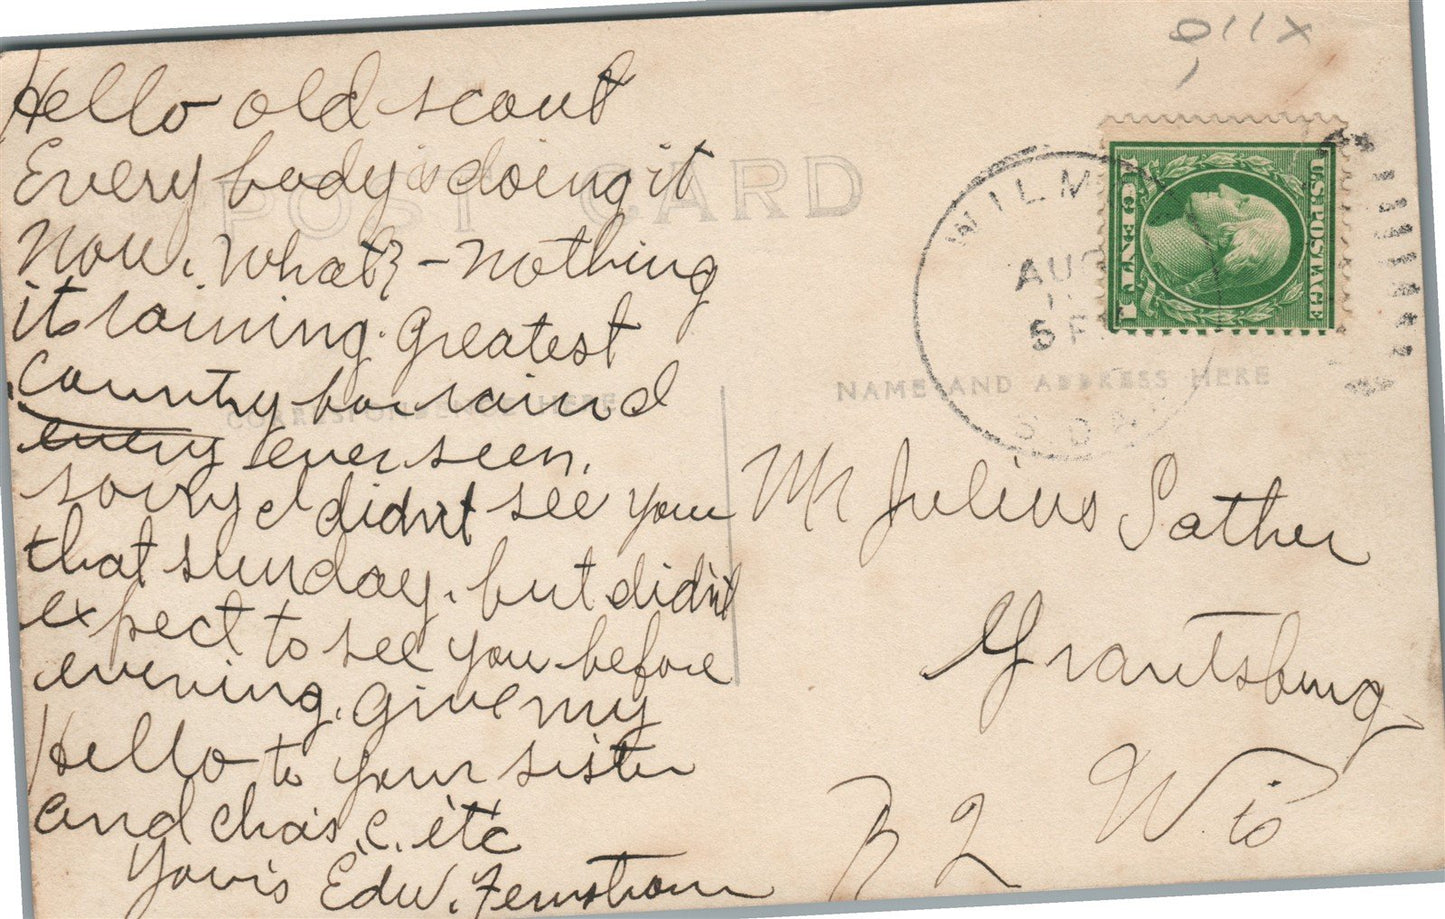 Hello old scout
Every body is doing it
Now. What? - Nothing
its raining. Greatest
country for rain I
every ever seen.
sorry I didn't see you
that sunday. but didn't
expect to see you before
evening. Give my
Hello to your sister
and chas. e. etc
Yours Edw. Fernstrom
POST CARD
CORRESPONDENCE HERE
NAME AND ADDRESS HERE
WILM
AUG
5 P
S. DAK
U.S. POSTAGE
1 CENT 1
Mr Julius Sather
Grantsburg
R 2 Wis